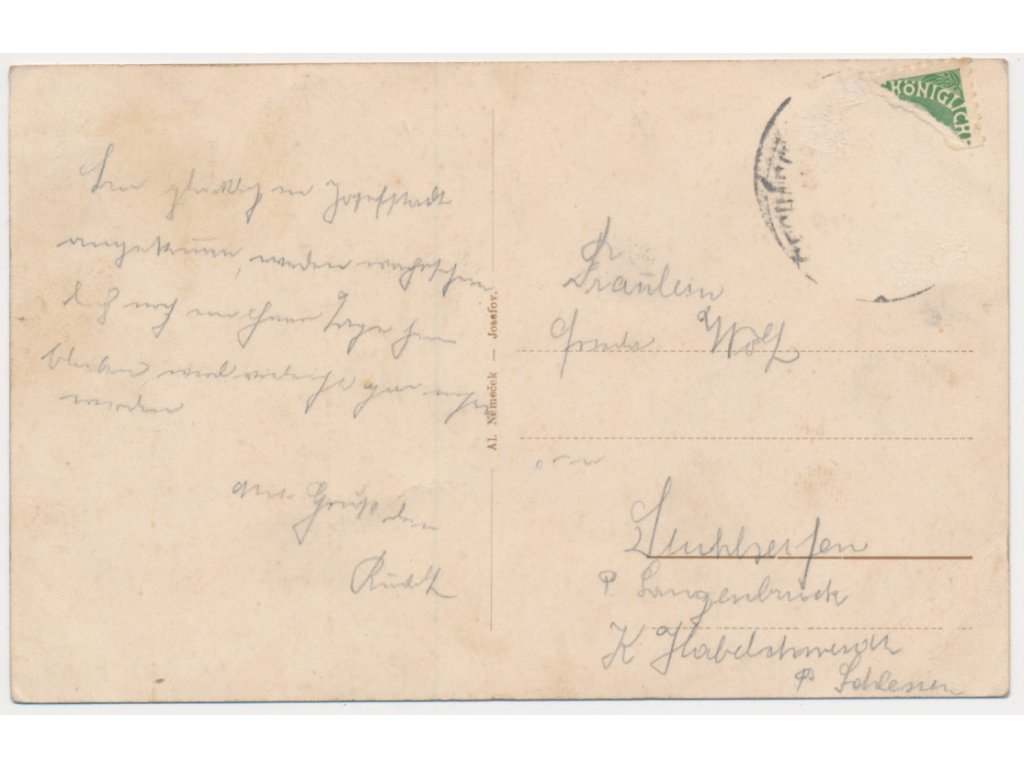 glücklich in Josefstadt
angekommen, werden wahrschein
lich noch ein paar Tage hier
bleiben wird vieleicht gar nichts
werden
Gruß dein
Al. Němeček — Josefov.
KÖNIGLICH
Fräulein
Frieda Wolf
in
Stuhlseifen
P Langenbrück
K Habelschwerdt
P Schlesien